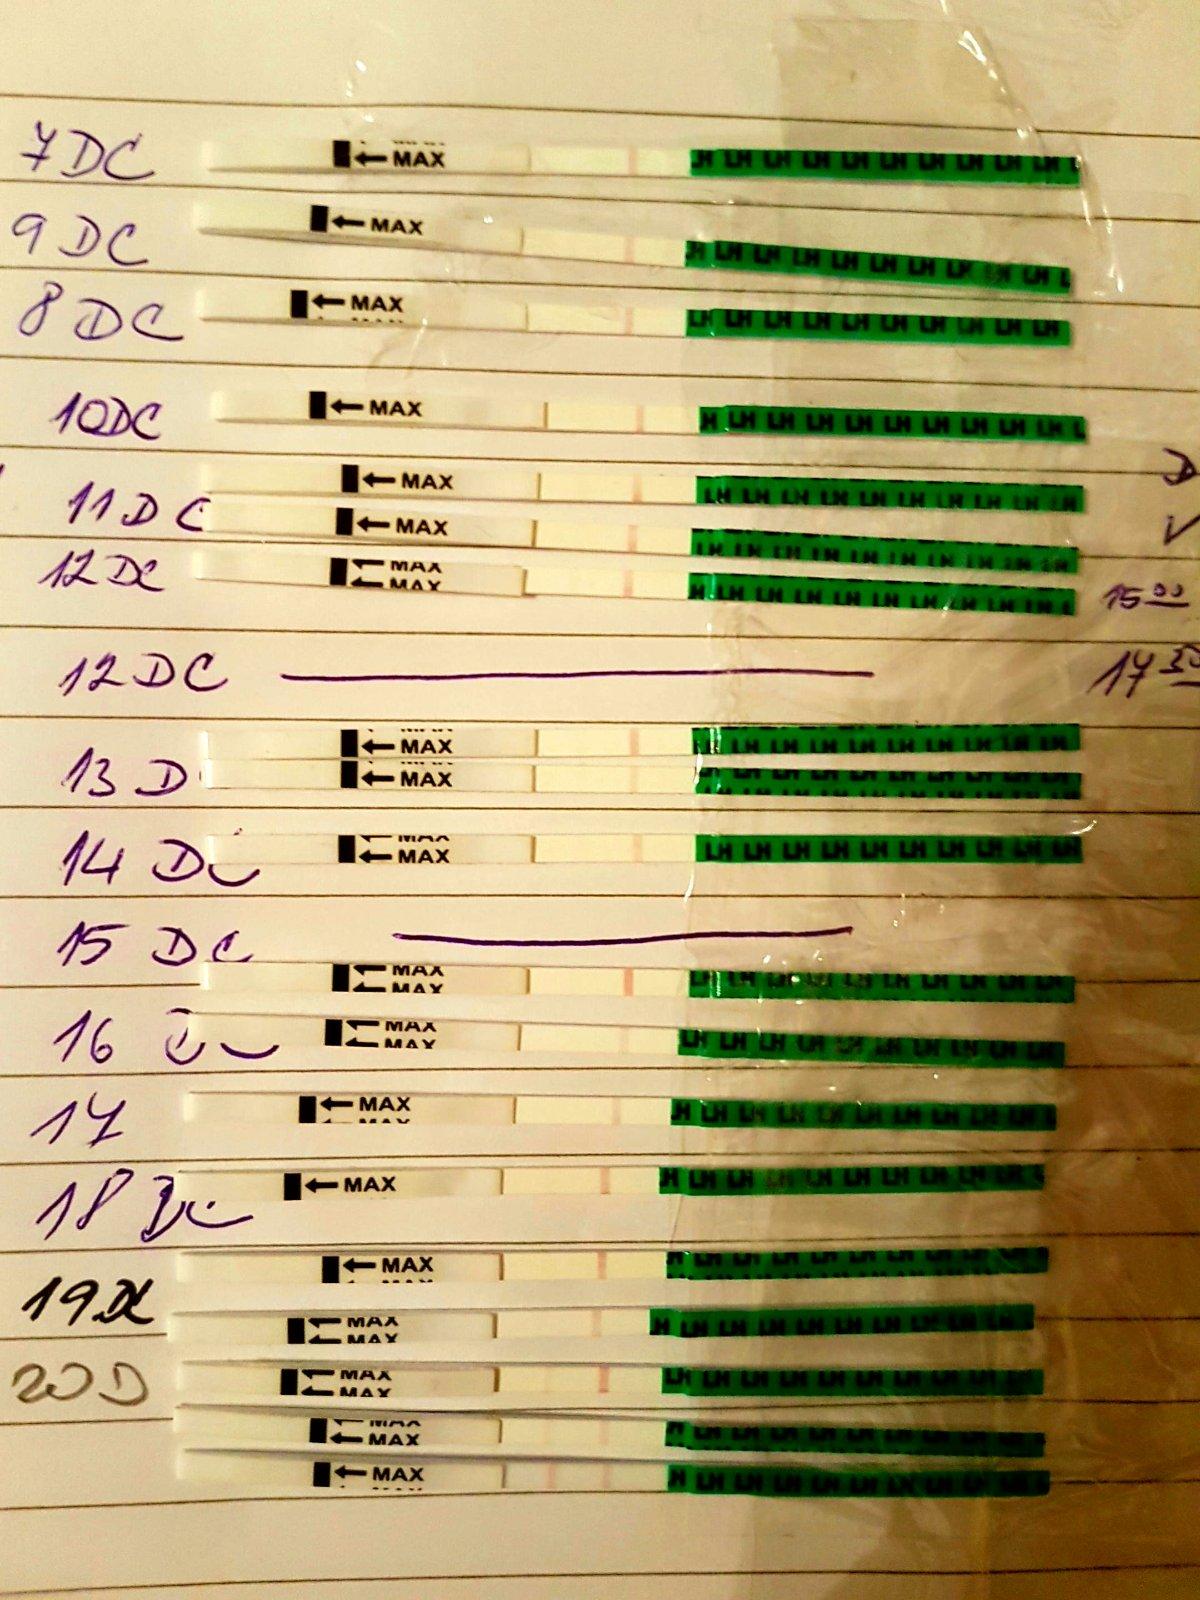 7DC ←MAX LH LH LH LH LH LH LH LH LH
9 DC ←MAX LH LH LH LH LH LH LH LH LH
8 DC ←MAX LH LH LH LH LH LH LH LH LH
10DC ←MAX LH LH LH LH LH LH LH LH LH
←MAX LH LH LH LH LH LH LH LH LH LH
11 DC ←MAX LH LH LH LH LH LH LH LH LH LH
12DC ←MAX LH LH LH LH LH LH LH LH LH 15 00
←MAX
12DC 17 30
←MAX LH LH LH LH LH LH LH LH LH LH
13 D ←MAX LH LH LH LH LH LH LH LH LH
14 DC ←MAX LH LH LH LH LH LH LH LH LH LH
15 DC
←MAX LH LH LH LH LH LH LH LH LH LH
←MAX
16 ←MAX LH LH LH LH LH LH LH LH LH LH
←MAX
17 ←MAX LH LH LH LH LH LH LH LH LH
18 DC ←MAX LH LH LH LH LH LH LH LH LH
←MAX LH LH LH LH LH LH LH LH LH
19 DC ←MAX LH LH LH LH LH LH LH LH
←MAX
20 D ←MAX LH LH LH LH LH LH LH LH LH
←MAX
←MAX LH LH LH LH LH LH LH LH LH
←MAX LH LH LH LH LH LH LH LH LH